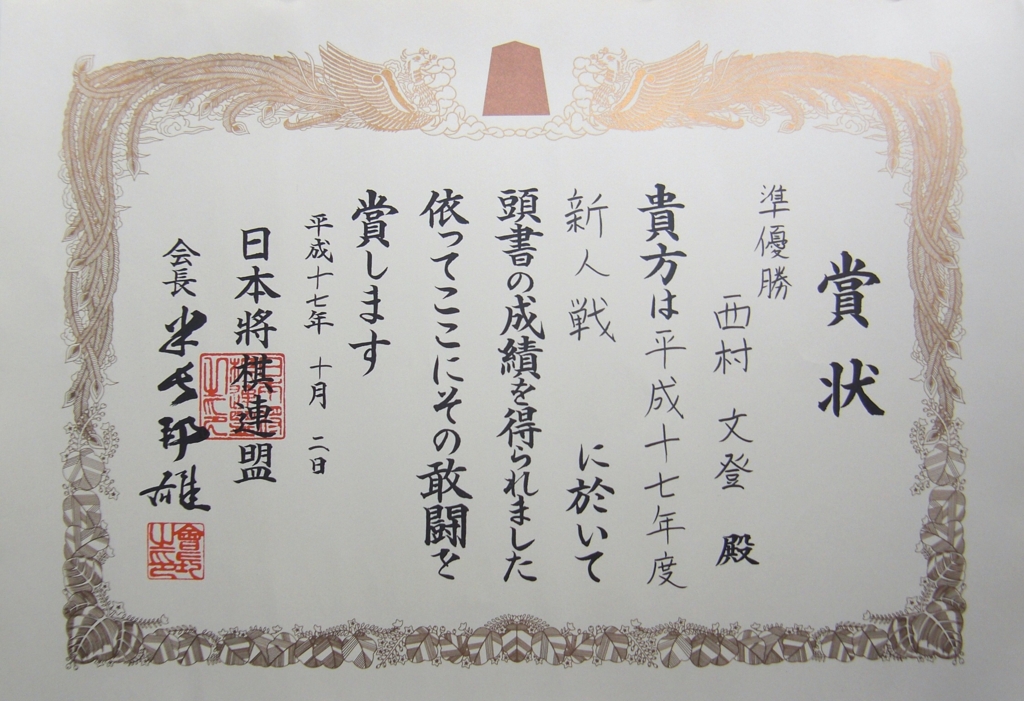 賞状
準優勝
西村 文登 殿
貴方は平成十七年度
新人戦 に於いて
頭書の成績を得られました
依ってここにその敢闘を
賞します
平成十七年 十月 二日
日本将棋連盟
会長 米長邦雄